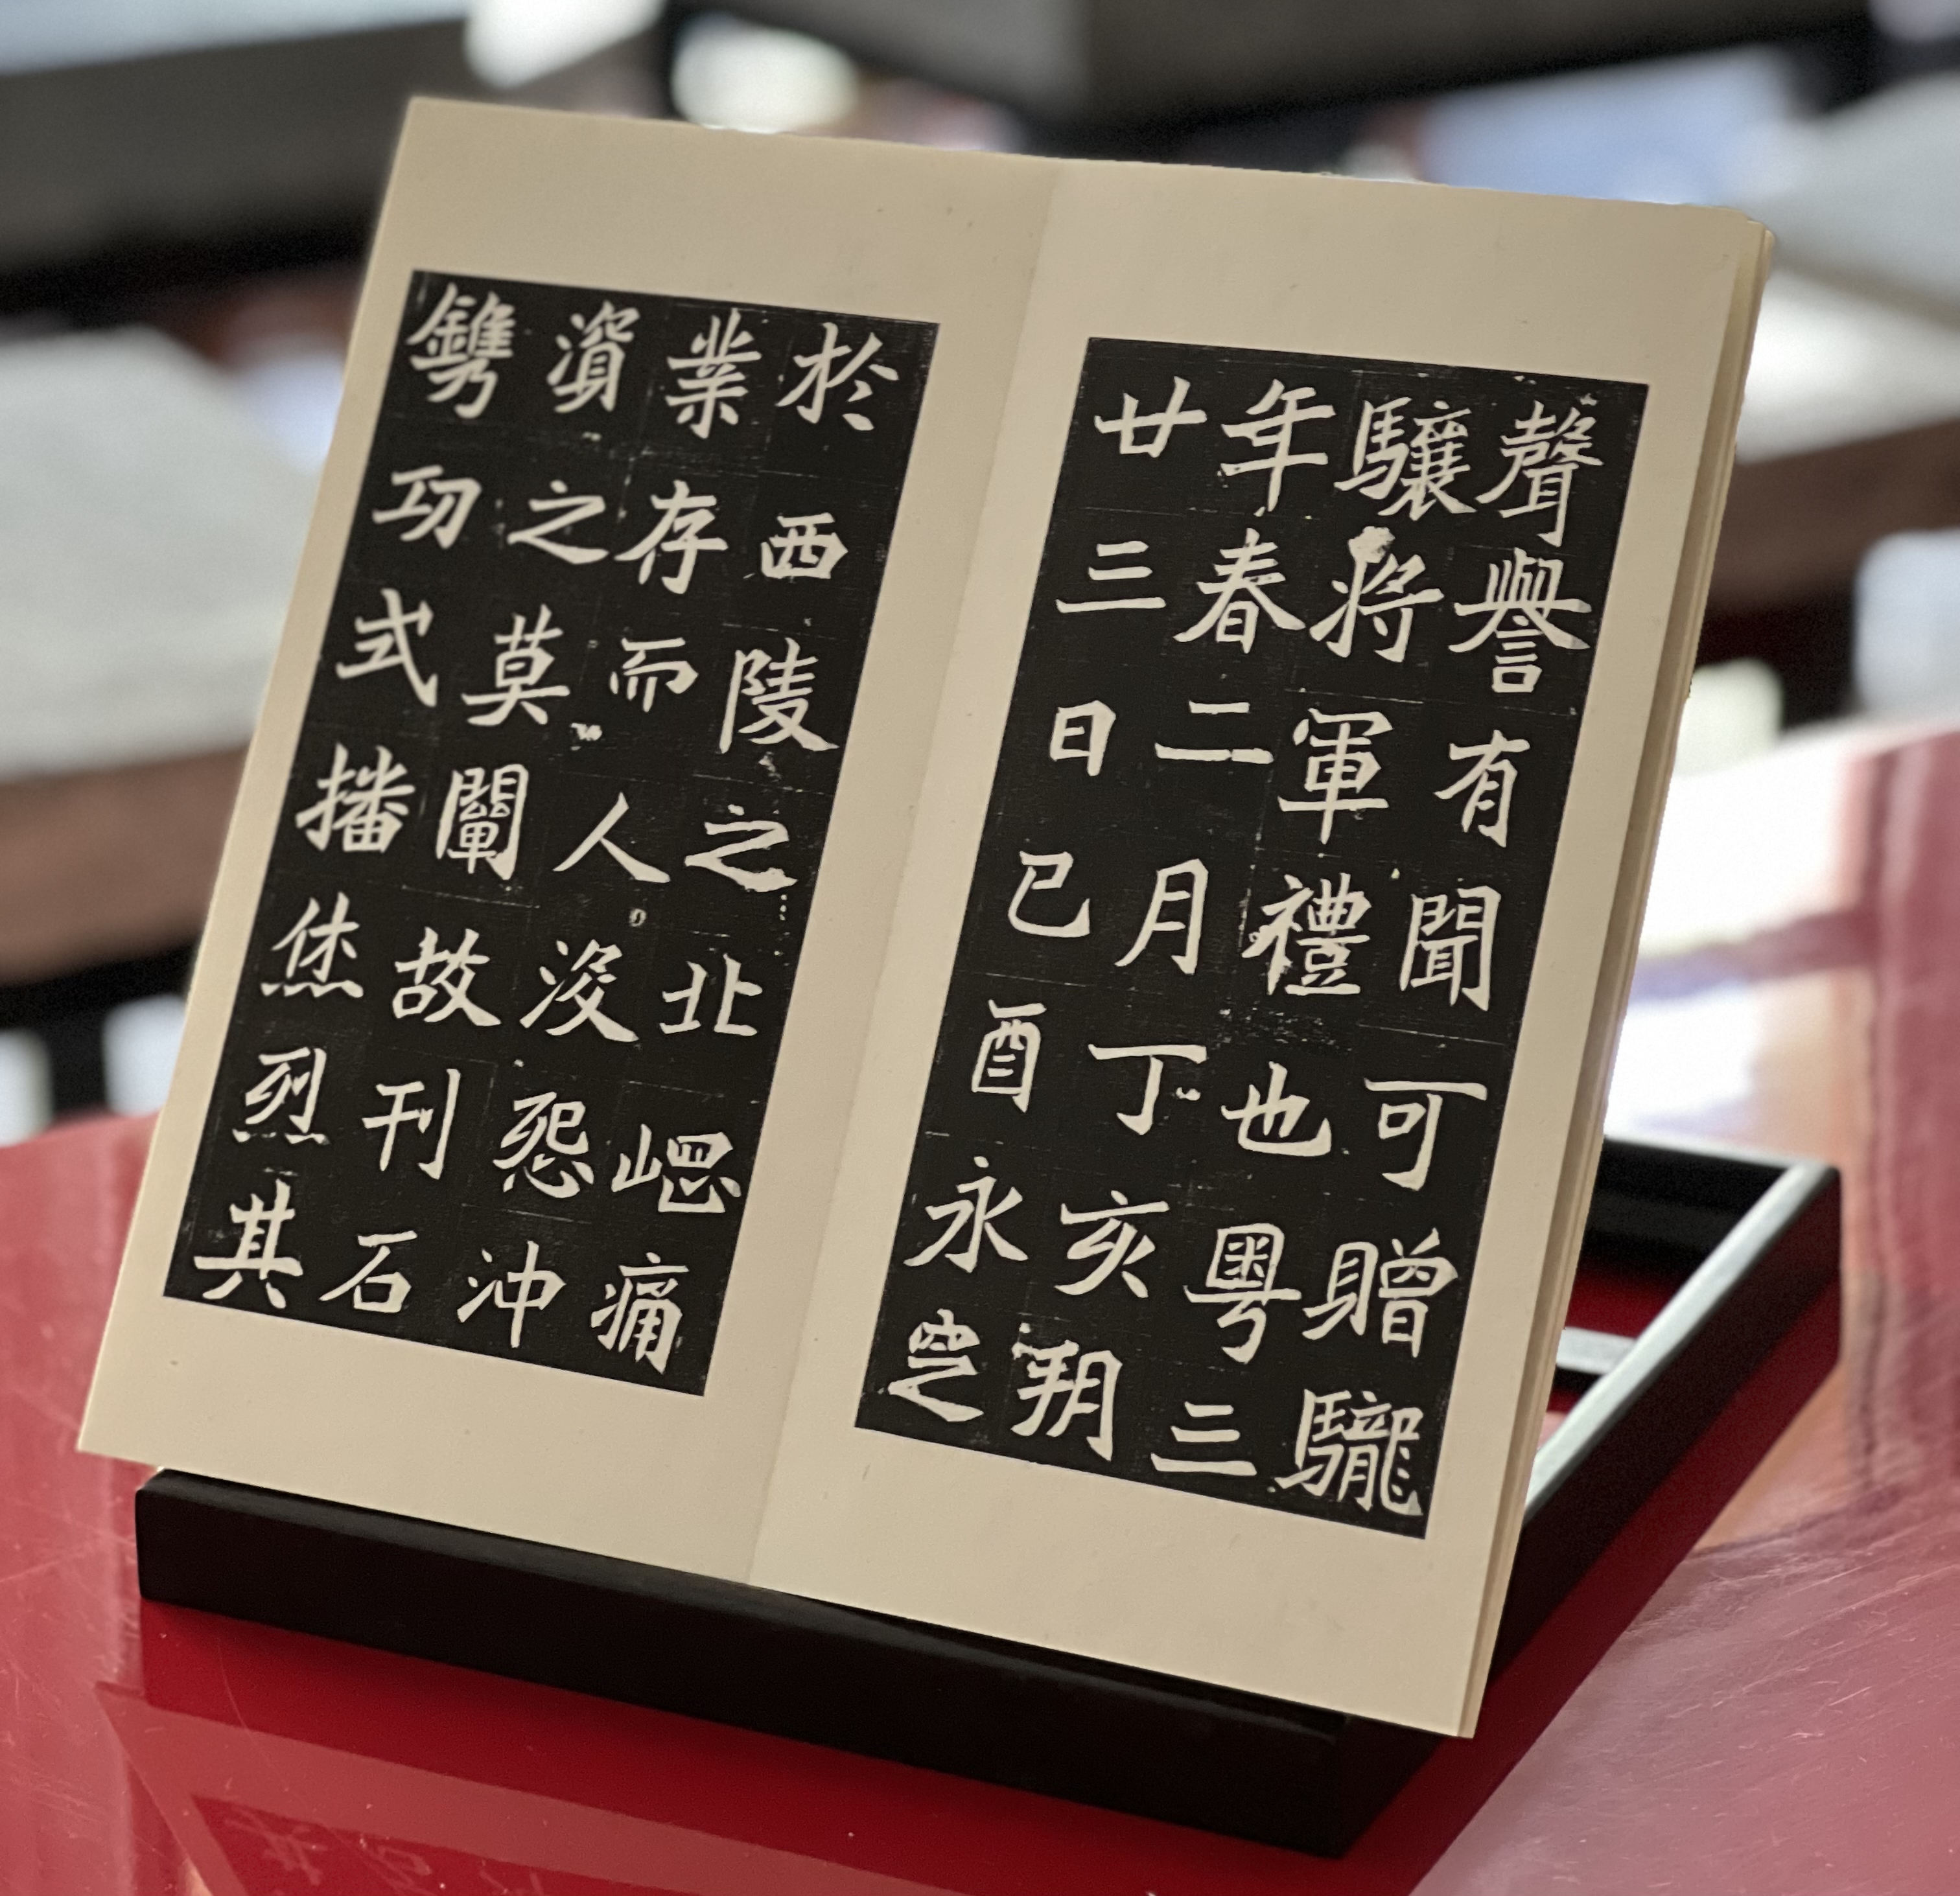 聲譽有聞可贈䮾
驤將軍禮也粵三
年春二月丁亥朔
廿三日己酉永窆
於西陵之北崗痛
業存而人沒怨沖
資之莫闡故刊石
鐫功式播烋烈其